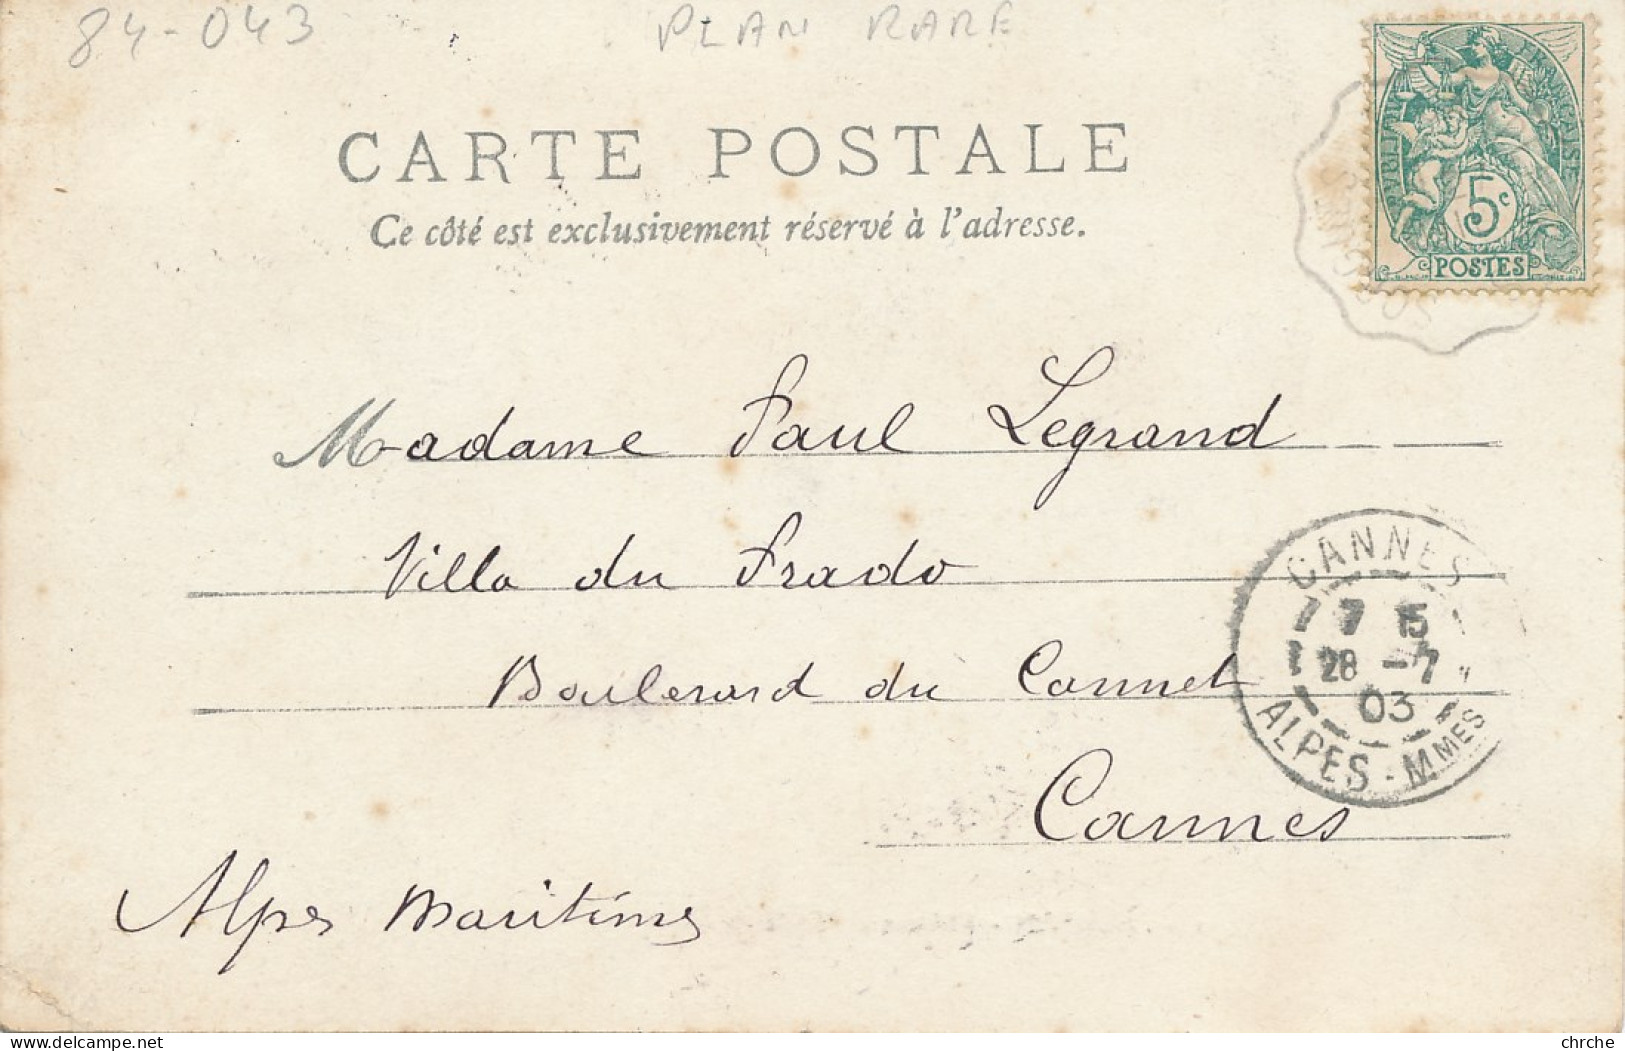 84-043
PLAN RARE
CARTE POSTALE
Ce côté est exclusivement réservé à l'adresse.
RÉPUBLIQUE FRANÇAISE
5c
POSTES
Madame Paul Legrand
Villa du Prado
Boulevard du Cannet
Cannes
Alpes Maritimes
CANNES
7 15
28 -7
03
ALPES-MMES
chrche